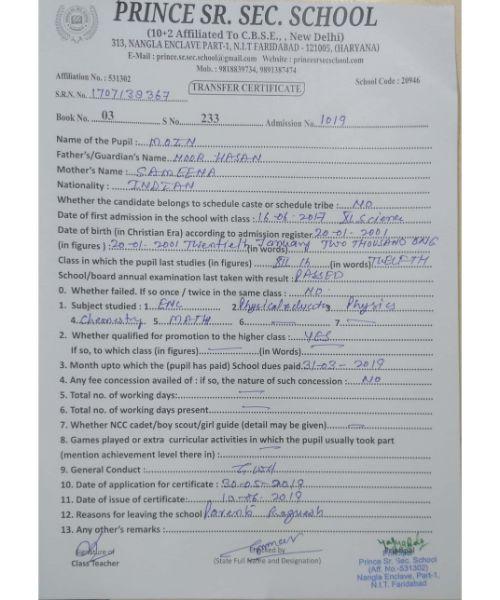 PRINCE SR. SEC. SCHOOL
(10+2 Affiliated To C.B.S.E., New Delhi)
313, NANGLA ENCLAVE PART-1, N.I.T FARIDABAD - 121005, (HARYANA)
E-Mail : prince.sr.sec.school@gmail.com Website : princesrsecschool.com
Mob. : 9818839734, 9891387474
Affiliation No. : 531302
School Code : 20946
TRANSFER CERTIFICATE
S.R.N. No. 1707138367
Book No. 03 S No. 233 Admission No. 1019
Name of the Pupil : MOIN
Father's/Guardian's Name NOOR HASAN
Mother's Name : SAMEENA
Nationality : INDIAN
Whether the candidate belongs to schedule caste or schedule tribe : NO
Date of first admission in the school with class : 16-06-2017 XI Science
Date of birth (in Christian Era) according to admission register 20-01-2001
(in figures) : 20-01-2001 Twentieth January (in words) TWO THOUSAND ONE
Class in which the pupil last studies (in figures) XII th (in words) TWELFTH
School/board annual examination last taken with result : PASSED
0. Whether failed. If so once / twice in the same class : NO
1. Subject studied : 1. ENG 2. Physical education 3. Physics
4. Chemistry 5. MATH 6. 7.
2. Whether qualified for promotion to the higher class : YES
If so, to which class (in figures) (in Words)
3. Month upto which the (pupil has paid) School dues paid 31-03-2019
4. Any fee concession availed of : if so, the nature of such concession : NO
5. Total no. of working days:
6. Total no. of working days present
7. Whether NCC cadet/boy scout/girl guide (detail may be given)
8. Games played or extra curricular activities in which the pupil usually took part
(mention achievement level there in) :
9. General Conduct :
10. Date of application for certificate : 30-05-2019
11. Date of issue of certificate: 10-06-2019
12. Reasons for leaving the school Parents Request
13. Any other's remarks :
Signature of
Class Teacher
Checked by
(State Full Name and Designation)
Principal
Prince Sr. Sec. School
(Aff. No.-531302)
Nangla Enclave, Part-1,
N.I.T. Faridabad